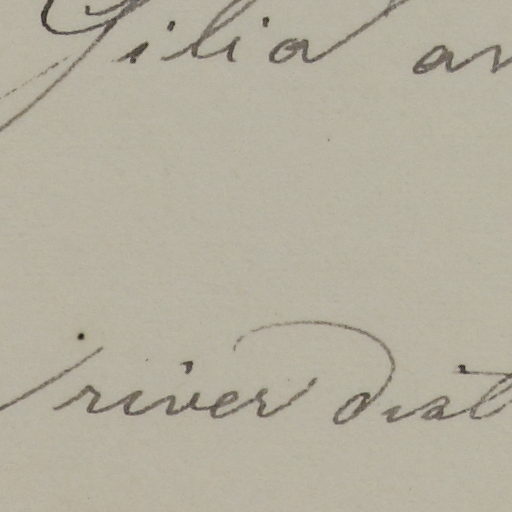 Gilia an
river dist